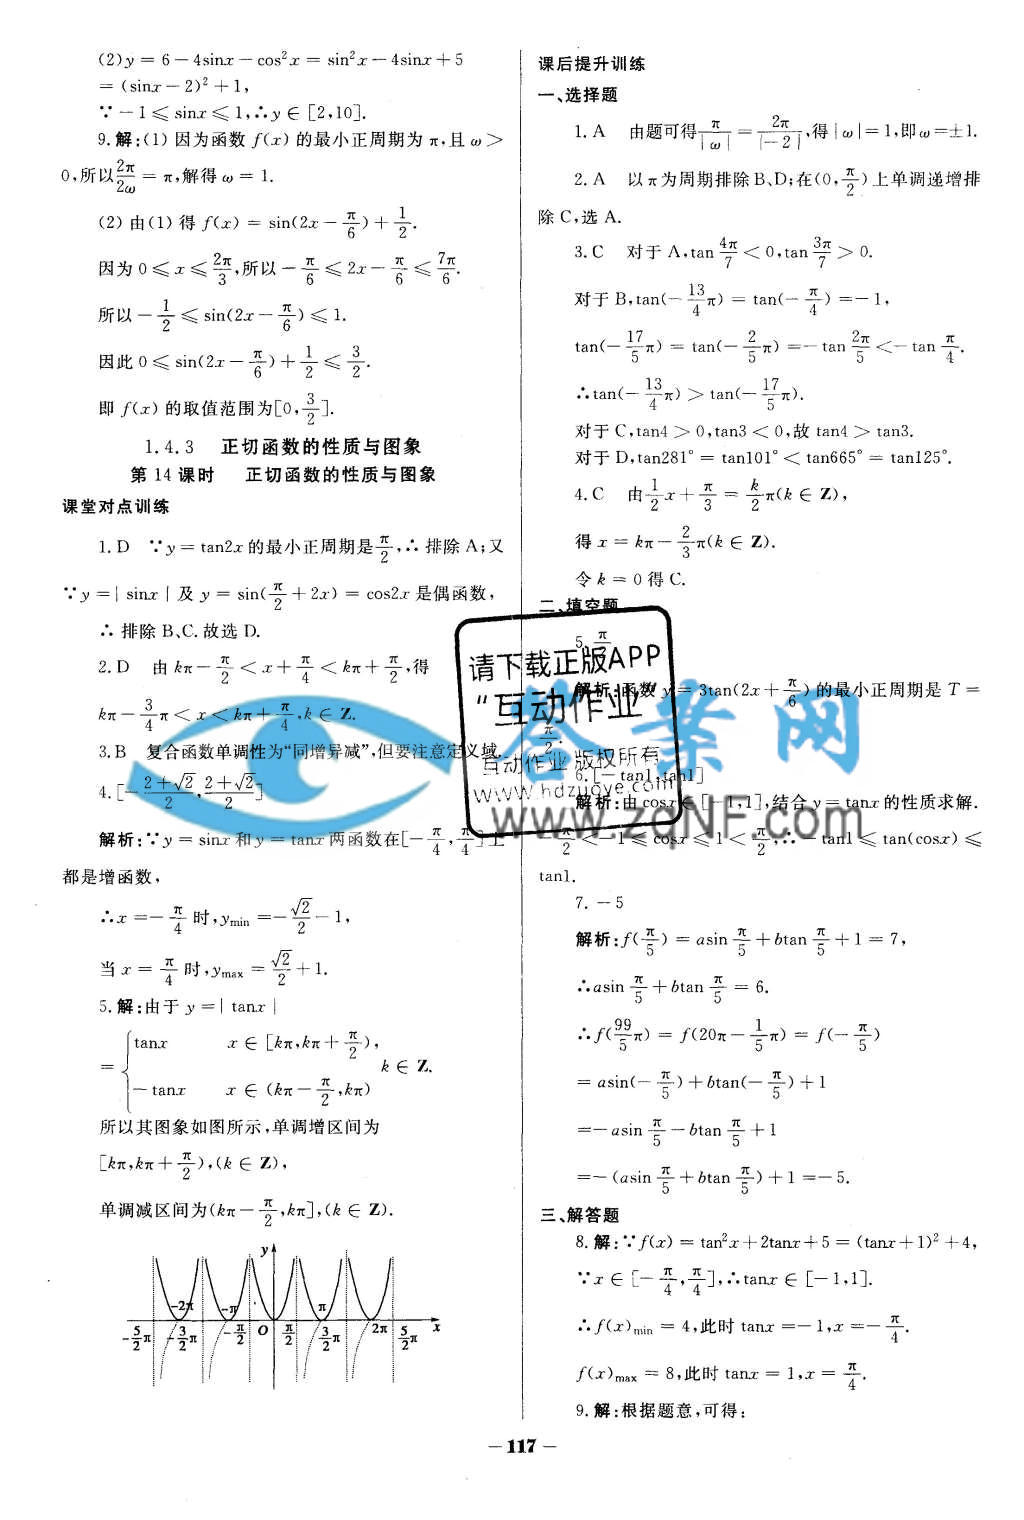 (2)y = 6 − 4sinx − cos²x = sin²x − 4sinx + 5
= (sinx − 2)² + 1,
∵ −1 ⩽ sinx ⩽ 1,∴y ∈ [2,10].
9.解:(1)因为函数 f(x)的最小正周期为 π,且 ω >
0,所以 2π/2ω = π,解得 ω = 1.
(2)由(1)得 f(x) = sin(2x − π/6) + 1/2.
因为 0 ⩽ x ⩽ 2π/3,所以 − π/6 ⩽ 2x − π/6 ⩽ 7π/6.
所以 − 1/2 ⩽ sin(2x − π/6) ⩽ 1.
因此 0 ⩽ sin(2x − π/6) + 1/2 ⩽ 3/2.
即 f(x)的取值范围为[0,3/2].
1.4.3 正切函数的性质与图象
第 14 课时 正切函数的性质与图象
课堂对点训练
1.D ∵y = tan2x 的最小正周期是 π/2,∴排除 A;又
∵y =| sinx | 及 y = sin(π/2 + 2x) = cos2x 是偶函数,
∴排除 B、C.故选 D.
2.D 由 kπ − π/2 < x + π/4 < kπ + π/2,得
kπ − 3/4π < x < kπ + π/4,k ∈ Z.
3.B 复合函数单调性为“同增异减”,但要注意定义域.
4.[− (2+√2)/2, (2+√2)/2]
解析:∵y = sinx 和 y = tanx 两函数在[− π/4, π/4]上
都是增函数,
∴x =− π/4 时,ymin =− √2/2 − 1,
当 x = π/4 时,ymax = √2/2 + 1.
5.解:由于 y =| tanx |
= { tanx x ∈ [kπ,kπ + π/2),
k ∈ Z.
− tanx x ∈ (kπ − π/2,kπ)
所以其图象如图所示,单调增区间为
[kπ,kπ + π/2),(k ∈ Z),
单调减区间为(kπ − π/2,kπ],(k ∈ Z).
y
−2π −π π
−5/2π −3/2π −π/2 O π/2 3/2π 2π 5/2π x
课后提升训练
一、选择题
1.A 由题可得 π/|ω| = 2π/|−2|,得|ω|= 1,即ω=±1.
2.A 以 π 为周期排除 B、D;在(0,π/2)上单调递增排
除 C,选 A.
3.C 对于 A,tan 4π/7 < 0,tan 3π/7 > 0.
对于 B,tan(− 13/4π) = tan(− π/4) =− 1,
tan(− 17/5π) = tan(− 2/5π) =− tan 2π/5 <− tan π/4.
∴tan(− 13/4π) > tan(− 17/5π).
对于 C,tan4 > 0,tan3 < 0,故 tan4 > tan3.
对于 D,tan281° = tan101° < tan665° = tan125°.
4.C 由 1/2x + π/3 = k/2π(k ∈ Z),
得 x = kπ − 2/3π(k ∈ Z).
令 k = 0 得 C.
二、填空题
5. π/2
解析:函数 y = 3tan(2x + π/6)的最小正周期是 T =
π/2.
6.[− tan1,tan1]
解析:由 cosx ∈ [−1,1],结合 y = tanx 的性质求解.
− π/2 < −1 ⩽ cosx ⩽ 1 < π/2,∴ − tan1 ⩽ tan(cosx) ⩽
tan1.
7. − 5
解析:f(π/5) = asin π/5 + btan π/5 + 1 = 7,
∴asin π/5 + btan π/5 = 6.
∴f(99/5π) = f(20π − 1/5π) = f(− π/5)
= asin(− π/5) + btan(− π/5) + 1
=− asin π/5 − btan π/5 + 1
=− (asin π/5 + btan π/5) + 1 =− 5.
三、解答题
8.解:∵f(x) = tan²x + 2tanx + 5 = (tanx + 1)² + 4,
∵x ∈ [− π/4, π/4],∴tanx ∈ [− 1,1].
∴f(x)min = 4,此时 tanx =− 1,x =− π/4.
f(x)max = 8,此时 tanx = 1,x = π/4.
9.解:根据题意,可得:
— 117 —
请下载正版APP
“互动作业”
互动作业 版权所有
www.hdzuoye.com
答案网
www.zqNF.com